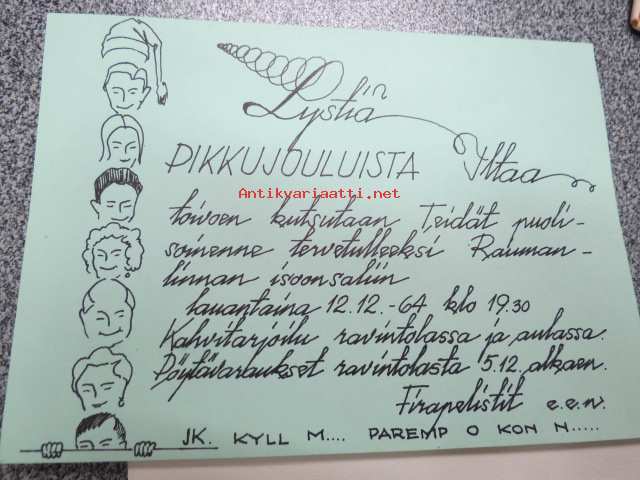 Lystiä
PIKKUJOULUISTA Iltaa
Antikvariaatti.net
toivoen kutsutaan Teidät puoli-
soinenne tervetulleeksi Rauman-
linnan isoonsaliin
lauantaina 12.12.-64 klo 19.30
Kahvitarjoilu ravintolassa ja aulassa.
Pöytävaraukset ravintolasta 5.12. alkaen.
Firapelistit e.e.n.
JK. KYLL M.... PAREMP O KON N.....